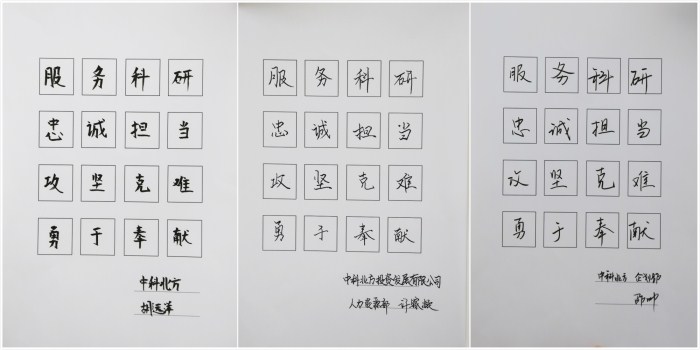 服务科研
忠诚担当
攻坚克难
勇于奉献
中科北方
服务科研
忠诚担当
攻坚克难
勇于奉献
中科北方投资发展有限公司
人力资源部
服务科研
忠诚担当
攻坚克难
勇于奉献
中科北方 企划部